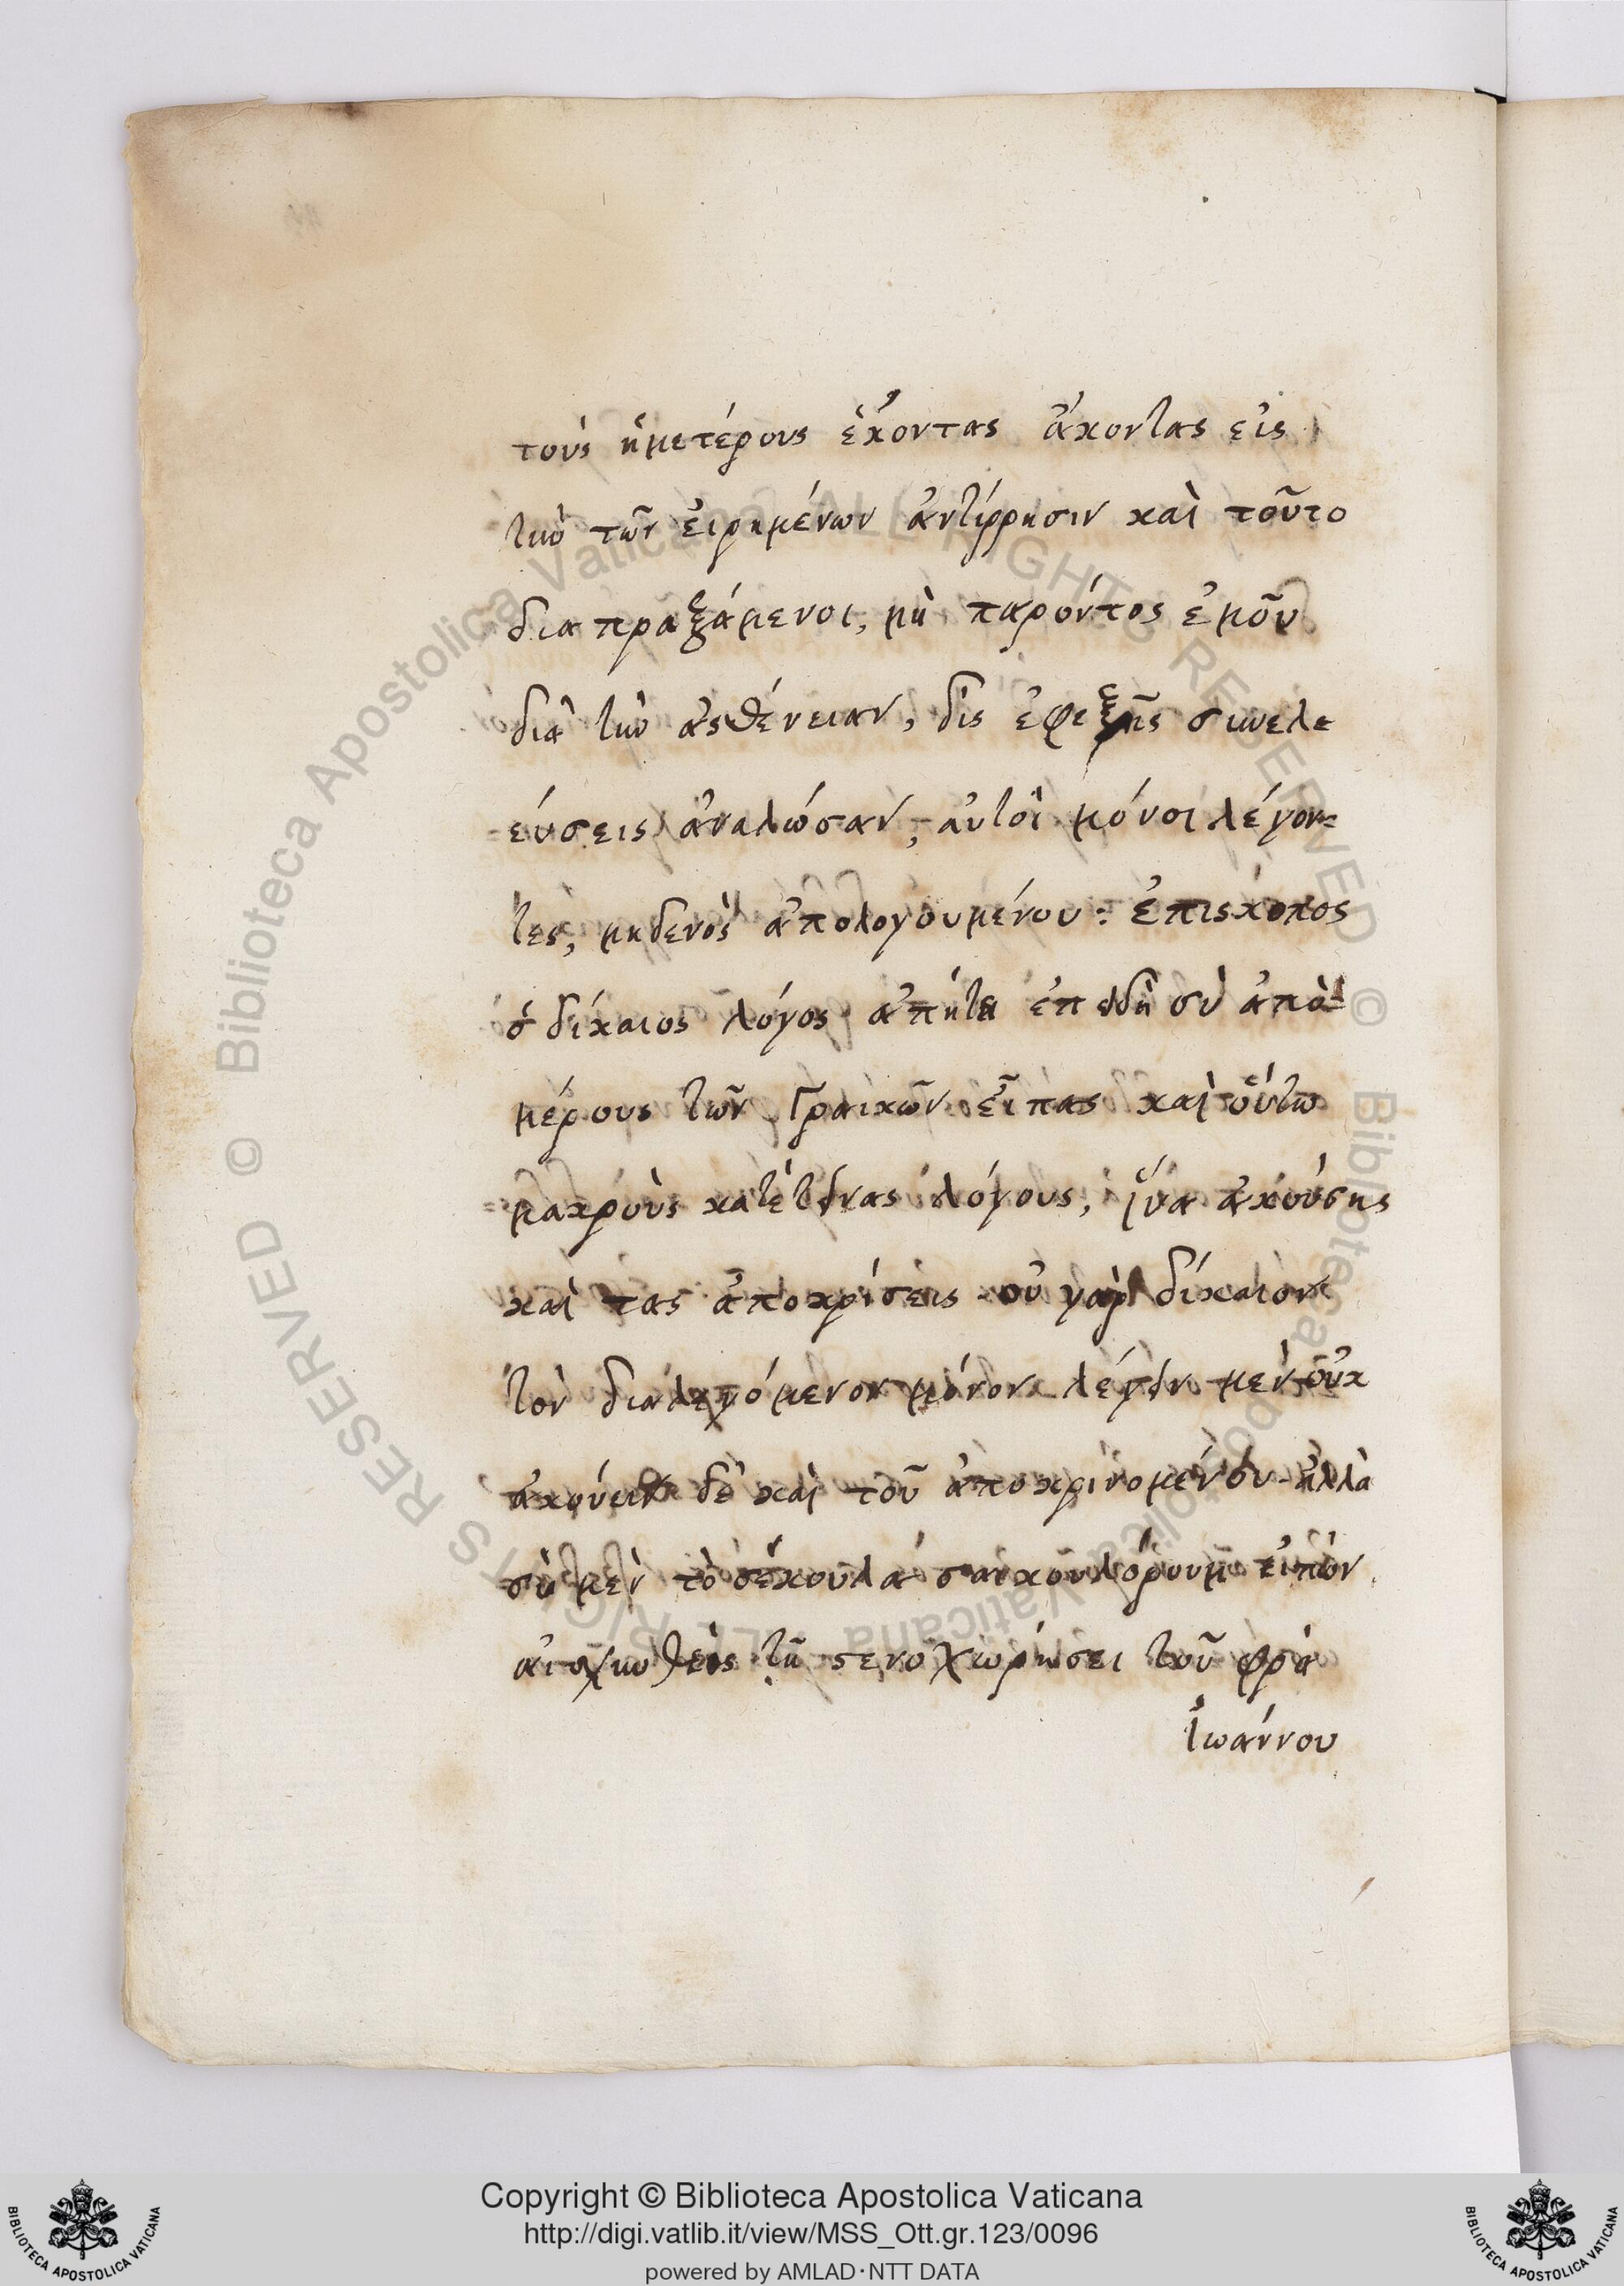 τοὺς ἡμετέρους ἑκόντας ἄκοντας εἰς
τὴν τῶν εἰρημένων ἀντίρρησιν καὶ τοῦτο
διαπραξάμενοι, μὴ παρόντος ἐμοῦ
διὰ τὴν ἀσθένειαν, δὶς ἐφεξῆς συνελε
εύσεις ἀναλώσαν, αὐτοὶ μόνοι λέγον=
τες, μηδενὸς ἀπολογουμένου: ἐπίσκοπος
ὁ δίκαιος λόγος ἀπήτει ἐπειδὴ σὺ ἀπὸ
μέρους τῶν Γραικῶν εἶπας καὶ οὕτω
μακροὺς κατέτεινας λόγους, ἵνα ἀκούσης
καὶ τας ἀποκρίσεις οὐ γὰρ δίκαιον
τὸν διαλεγόμενον μόνον λέγειν μὲν οὐκ
ἀκούειν δὲ καὶ τοῦ ἀποκρινομένου ἀλλὰ
σὺ μὲν τὸ σέκουλα σαικουλόρουμ εἰπὼν
αἰσχυνθεὶς τῇ στενοχωρήσει τοῦ φρὰ
Ἰωάννου
Copyright © Biblioteca Apostolica Vaticana
http://digi.vatlib.it/view/MSS_Ott.gr.123/0096
powered by AMLAD·NTT DATA
BIBLIOTECA APOSTOLICA VATICANA
BIBLIOTECA APOSTOLICA VATICANA
© Biblioteca Apostolica Vaticana ALL RIGHTS RESERVED
© Biblioteca Apostolica Vaticana ALL RIGHTS RESERVED